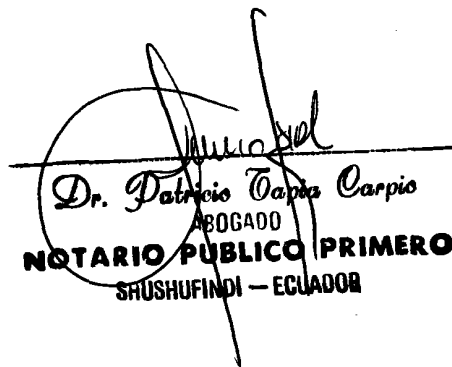 Dr. Patricio Tapia Carpio
ABOGADO
NOTARIO PUBLICO PRIMERO
SHUSHUFINDI — ECUADOR